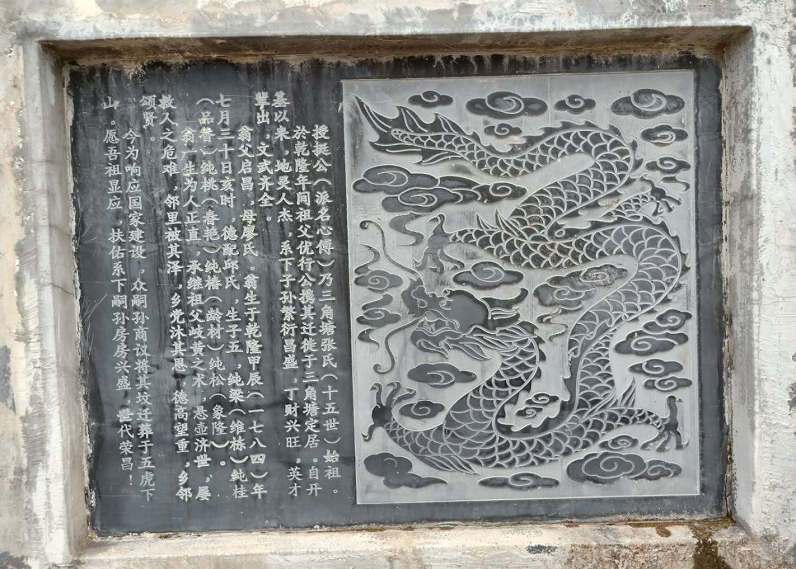 授挺公（派名心傅）乃三角塘张氏（十五世）始祖。
于乾隆年间祖父优行公携其迁徙于三角塘定居。自开
基以来，地灵人杰，系下子孙繁衍昌盛，丁财兴旺，英才
辈出，文武齐全。
翁父启昌，母廖氏。翁生于乾隆甲辰（一七八四）年
七月三十日亥时，德配邱氏，生子五，纯梁（维栋）纯桂
（品普）纯桃（春艳）纯椿（龄材）纯松（象隆）。
翁，生为人正直，承继祖父岐黄之术，悬壶济世，屡
救人之危难，邻里被其泽，乡党沐其恩，德高望重，乡邻
颂贤。
今为响应国家建设，众嗣孙商议将其坟迁葬于五虎下
山。愿吾祖显应，扶佑系下嗣孙房房兴盛，世代荣昌！